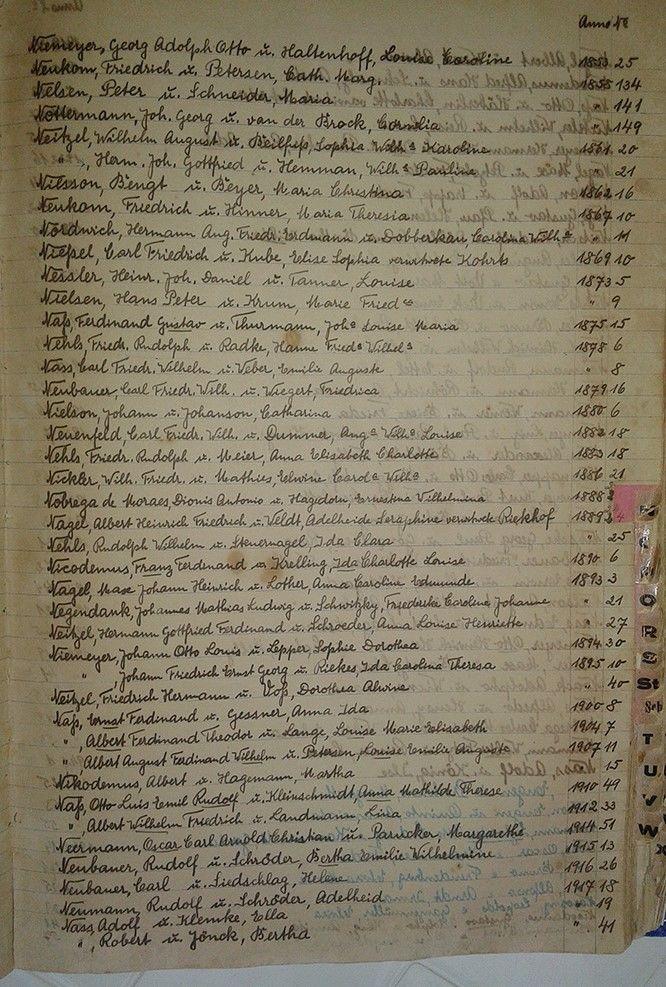 Anno №
Niemeyer, Georg Adolph Otto u. Haltenhoff, Louise Caroline 1853 25
Neukom, Friedrich u. Petersen, Cath. Marg. 1855 134
Nelsen, Peter u. Schneider, Maria " 141
Nottermann, Joh. Georg u. van der Brock, Cornelia " 149
Neitzel, Wilhelm August u. Beilfuß, Sophia Wilhᵃ Karoline 1861 20
" , Herm. Joh. Gottfried u. Hemman, Wilhᵃ Pauline " 21
Nilsson, Bengt u. Beyer, Maria Christina 1862 16
Neukom, Friedrich u. Hinner, Maria Theresia 1867 10
Nordwich, Hermann Aug. Friedr. Erdmann u. Dobberkau Carolina Wilhᵃ " 11
Nießel, Carl Friedrich u. Kube, Elise Sophia verwitwete Kohrts 1869 10
Nessler, Heinr. Joh. Daniel u. Tanner, Louise 1873 5
Nielsen, Hans Peter u. Krum, Marie Friedᵉ " 9
Naß, Ferdinand Gustav u. Thurmann, Johᵃ Louise Maria 1875 15
Nehls, Friedr. Rudolph u. Radke, Hanne Friedᵃ Wilhelᵃ 1878 6
Nass, Carl Friedr. Wilhelm u. Veber, Emilie Auguste " 8
Neubauer, Carl Friedr. Wilh. u. Wiegert, Friedrica 1879 16
Nielson, Johann u. Johanson, Catharina 1880 6
Neuenfeld, Carl Friedr. Wilh. u. Dummer, Augᵃ Wilhᵃ Louise 1882 18
Nehls, Friedr. Rudolph u. Meier, Anna Elisabeth Charlotte 1883 18
Nickler, Wilh. Friedr. u. Mathies, Edwine Carolᵃ Wilhᵃ 1886 21
Nobrega de Moraes, Dionis Antonio u. Hagedorn, Ernestina Vilhelmina 1888
Nagel, Albert Heinrich Friedrich u. Veldt, Adelheide Seraphine verwitwete Riekhof 1889
Nehls, Rudolph Wilhelm u. Steuernagel, Ida Clara " 25
Nicodemus, Franz Ferdinand u. Krelling, Ida Charlotte Louise 1890 6
Nagel, Max Johann Heinrich u. Lother, Anna Caroline Edmunde 1893 3
Negendank, Johannes Mathias Ludwig u. Schwitzky, Friederike Caroline Johanne " 21
Neitzel, Hermann Gottfried Ferdinand u. Schroeder, Anna Louise Henriette " 27
Niemeyer, Johann Otto Louis u. Lepper, Sophie Dorothea 1894 30
" , Johann Friedrich Ernst Georg u. Riekes, Ida Carolina Theresa 1895 10
Neitzel, Friedrich Hermann u. Voß, Dorothea Alwine " 40
Naß, Ernst Ferdinand u. Gessner, Anna Ida 1900 8
" , Albert Ferdinand Theodor u. Lange, Louise Marie Elisabeth 1904 7
" , Albert August Ferdinand Wilhelm u. Petersen, Louise Emilie Auguste 1907 11
Nikodemus, Albert u. Hagemann, Martha " 15
Naß, Otto Luis Emil Rudolf u. Kleinschmidt, Anna Mathilde Therese 1910 49
" , Albert Wilhelm Friedrich u. Landmann Lina 1912 33
Neermann, Oscar Carl Arnold Christian u. Parucker Margarethe 1914 51
Neubauer, Rudolf u. Schröder, Bertha Emilie Wilhelmine 1915 13
Neubauer, Carl u. Liedschlag, Helene 1916 26
Neumann, Rudolf u. Schröder, Adelheid 1917 18
Nass, Adolf u. Klemke, Ella " 19
" , Robert u. Jönck, Bertha " 41
O
R
S
St
Sch
T
U
V
W